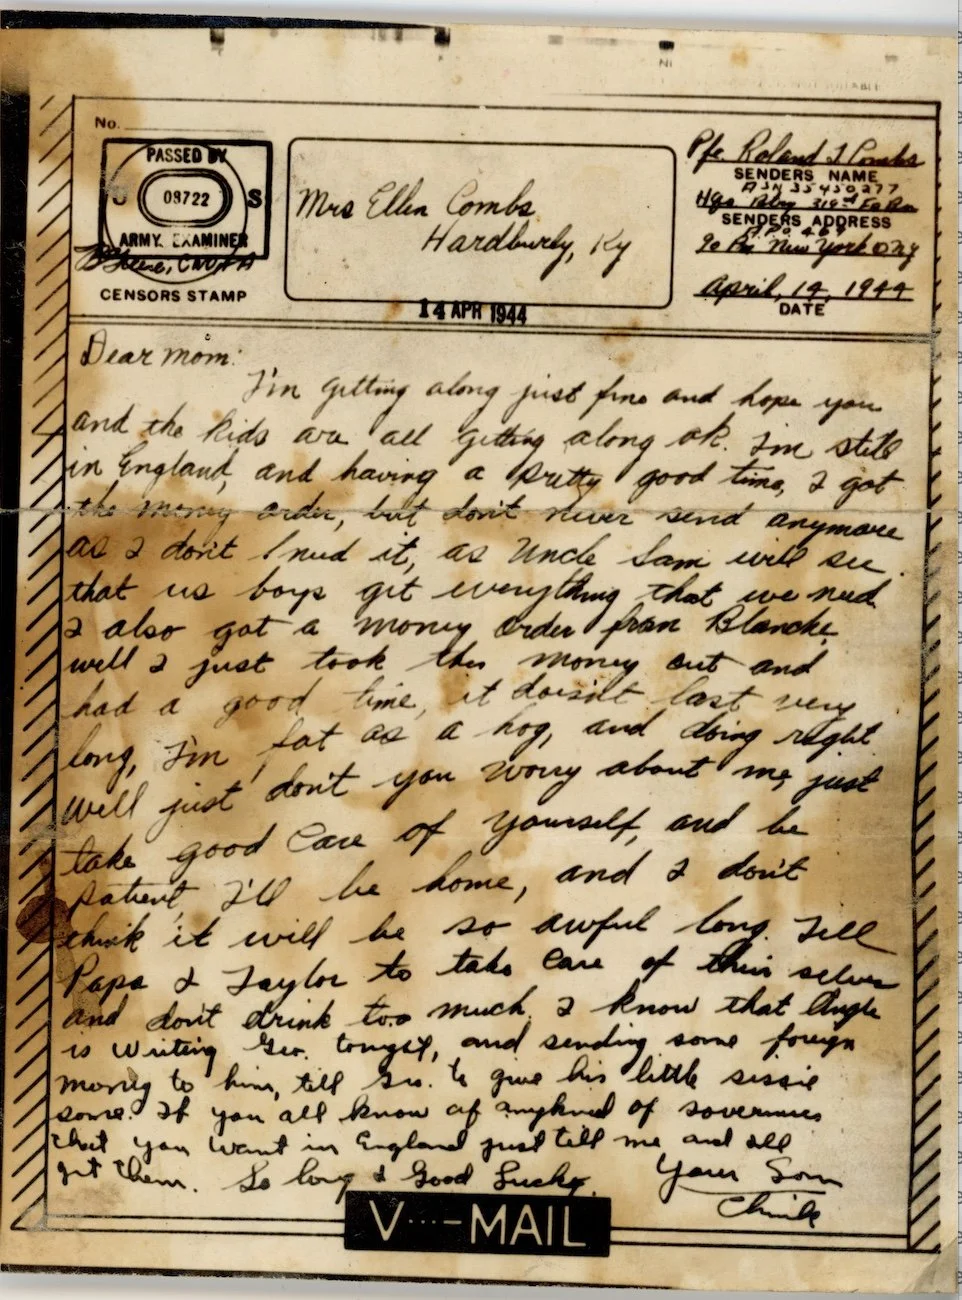 No.
PASSED BY
U 08722 S
ARMY EXAMINER
CENSORS STAMP
Mrs Ellen Combs
Hardburly, Ky
14 APR 1944
Pfc Roland J Combs
SENDERS NAME
ASN 35450277
Hqs Btry 319th Fa Bn
SENDERS ADDRESS
APO 469
% Pm New York NY
April, 14, 1944
DATE
Dear mom:
I'm getting along just fine and hope you
and the kids are all getting along ok. I'm still
in England, and having a pretty good time, I got
the money order, but don't never send anymore
as I don't need it, as Uncle Sam will see
that us boys get everything that we need
I also got a money order from Blanche,
well I just took the money out and
had a good time, it doesn't last very
long, I'm fat as a hog, and doing right
well just don't you worry about me, just
take good Care of yourself, and be
patient I'll be home, and I don't
think it will be so awful long. Tell
Papa & Taylor to take Care of their selves
and don't drink too much. I know that
is writing Geo. and sending some foreign
money to him, tell Geo. to give his little sissie
some. If you all know of anykind of
that you want in England just tell me and
get them. So long & Good Lucky. Your Son
V···-MAIL